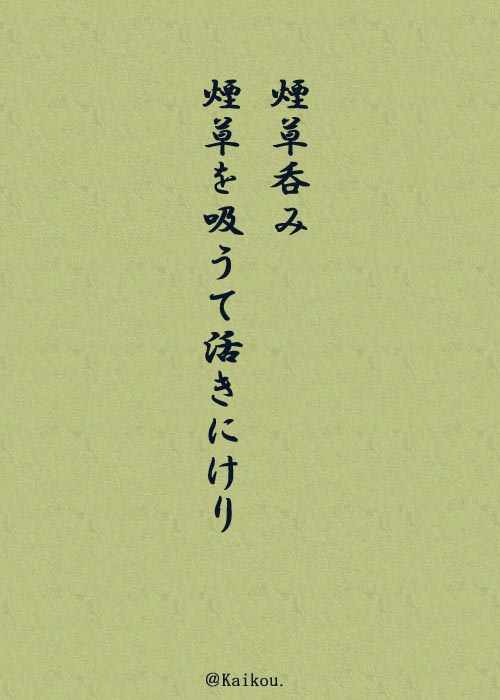 煙草呑み
煙草を吸うて活きにけり
@Kaikou.